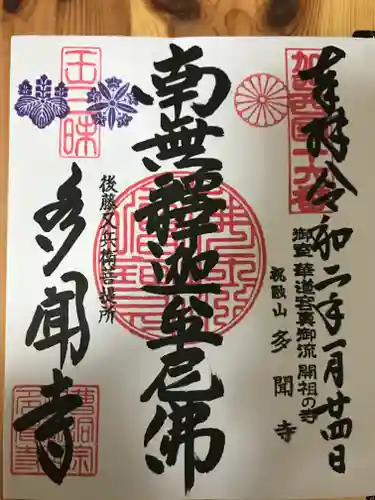 奉拝 令和二年一月廿四日
御室 華道容真御流 開祖の寺
祝融山 多聞寺
南無釋迦牟尼佛
後藤又兵衛菩提所
王三昧
多聞寺
曹洞宗